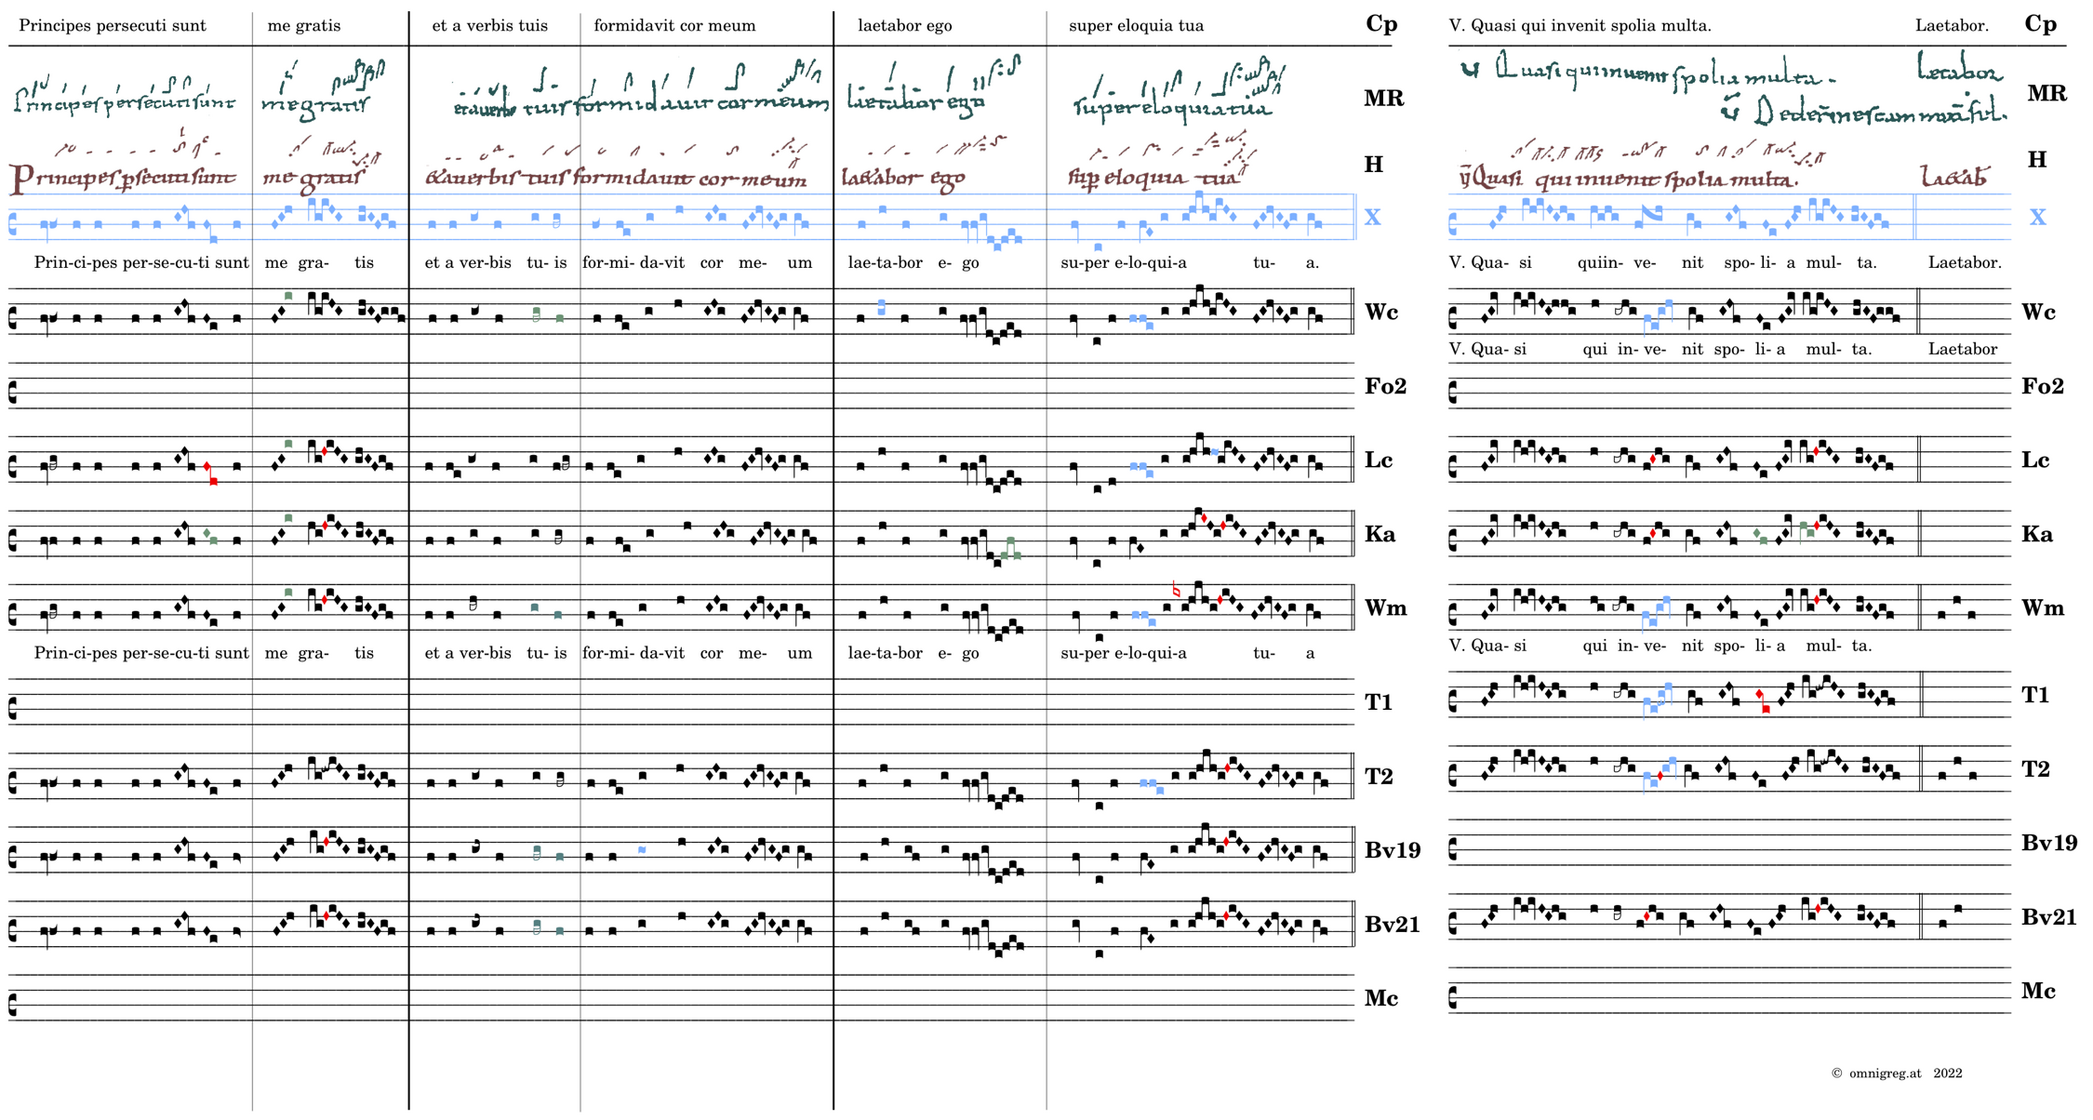 Principes persecuti sunt me gratis et a verbis tuis formidavit cor meum laetabor ego super eloquia tua Cp V. Quasi qui invenit spolia multa. Laetabor. Cp
Principes persecuti sunt me gratis et a verbis tuis formidavit cor meum laetabor ego super eloquia tua MR Quasi qui invenit spolia multa. Letabor MR
Principes persecuti sunt me gratis & a verbis tuis formidavit cor meum la&abor ego sup eloquia tua H Quasi qui invenit spolia multa. La&ab H
X X
Prin-ci-pes per-se-cu-ti sunt me gra- tis et a ver-bis tu- is for-mi- da-vit cor me- um lae-ta-bor e- go su-per e-lo-qui-a tu- a. V. Qua- si quiin- ve- nit spo- li- a mul- ta. Laetabor.
Wc Wc
V. Qua- si qui in- ve- nit spo- li- a mul- ta. Laetabor
Fo2 Fo2
Lc Lc
Ka Ka
Wm Wm
Prin-ci-pes per-se-cu-ti sunt me gra- tis et a ver-bis tu- is for-mi- da-vit cor me- um lae-ta-bor e- go su-per e-lo-qui-a tu- a V. Qua- si qui in- ve- nit spo- li- a mul- ta.
T1 T1
T2 T2
Bv19 Bv19
Bv21 Bv21
Mc Mc
© omnigreg.at 2022